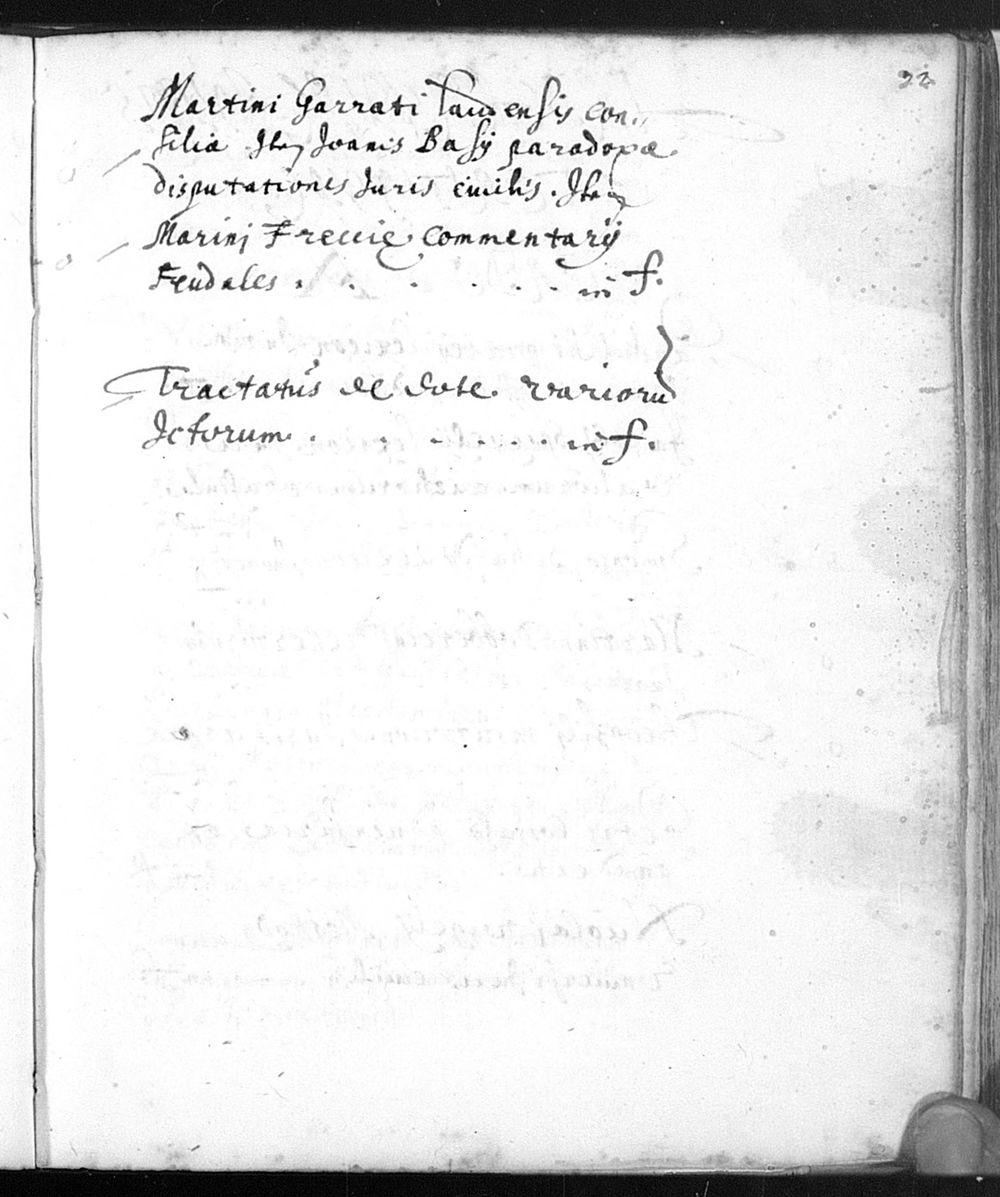 22
Martini Garrati laudensis con„
silia. Item Joanis Basij paradoxæ
disputationes Juris ciuilis. Item
Marini Freccię commentarij
Feudales . . . . . . in f.
Tractatus de dote variorũ
Jctorum . . . . . . in f.